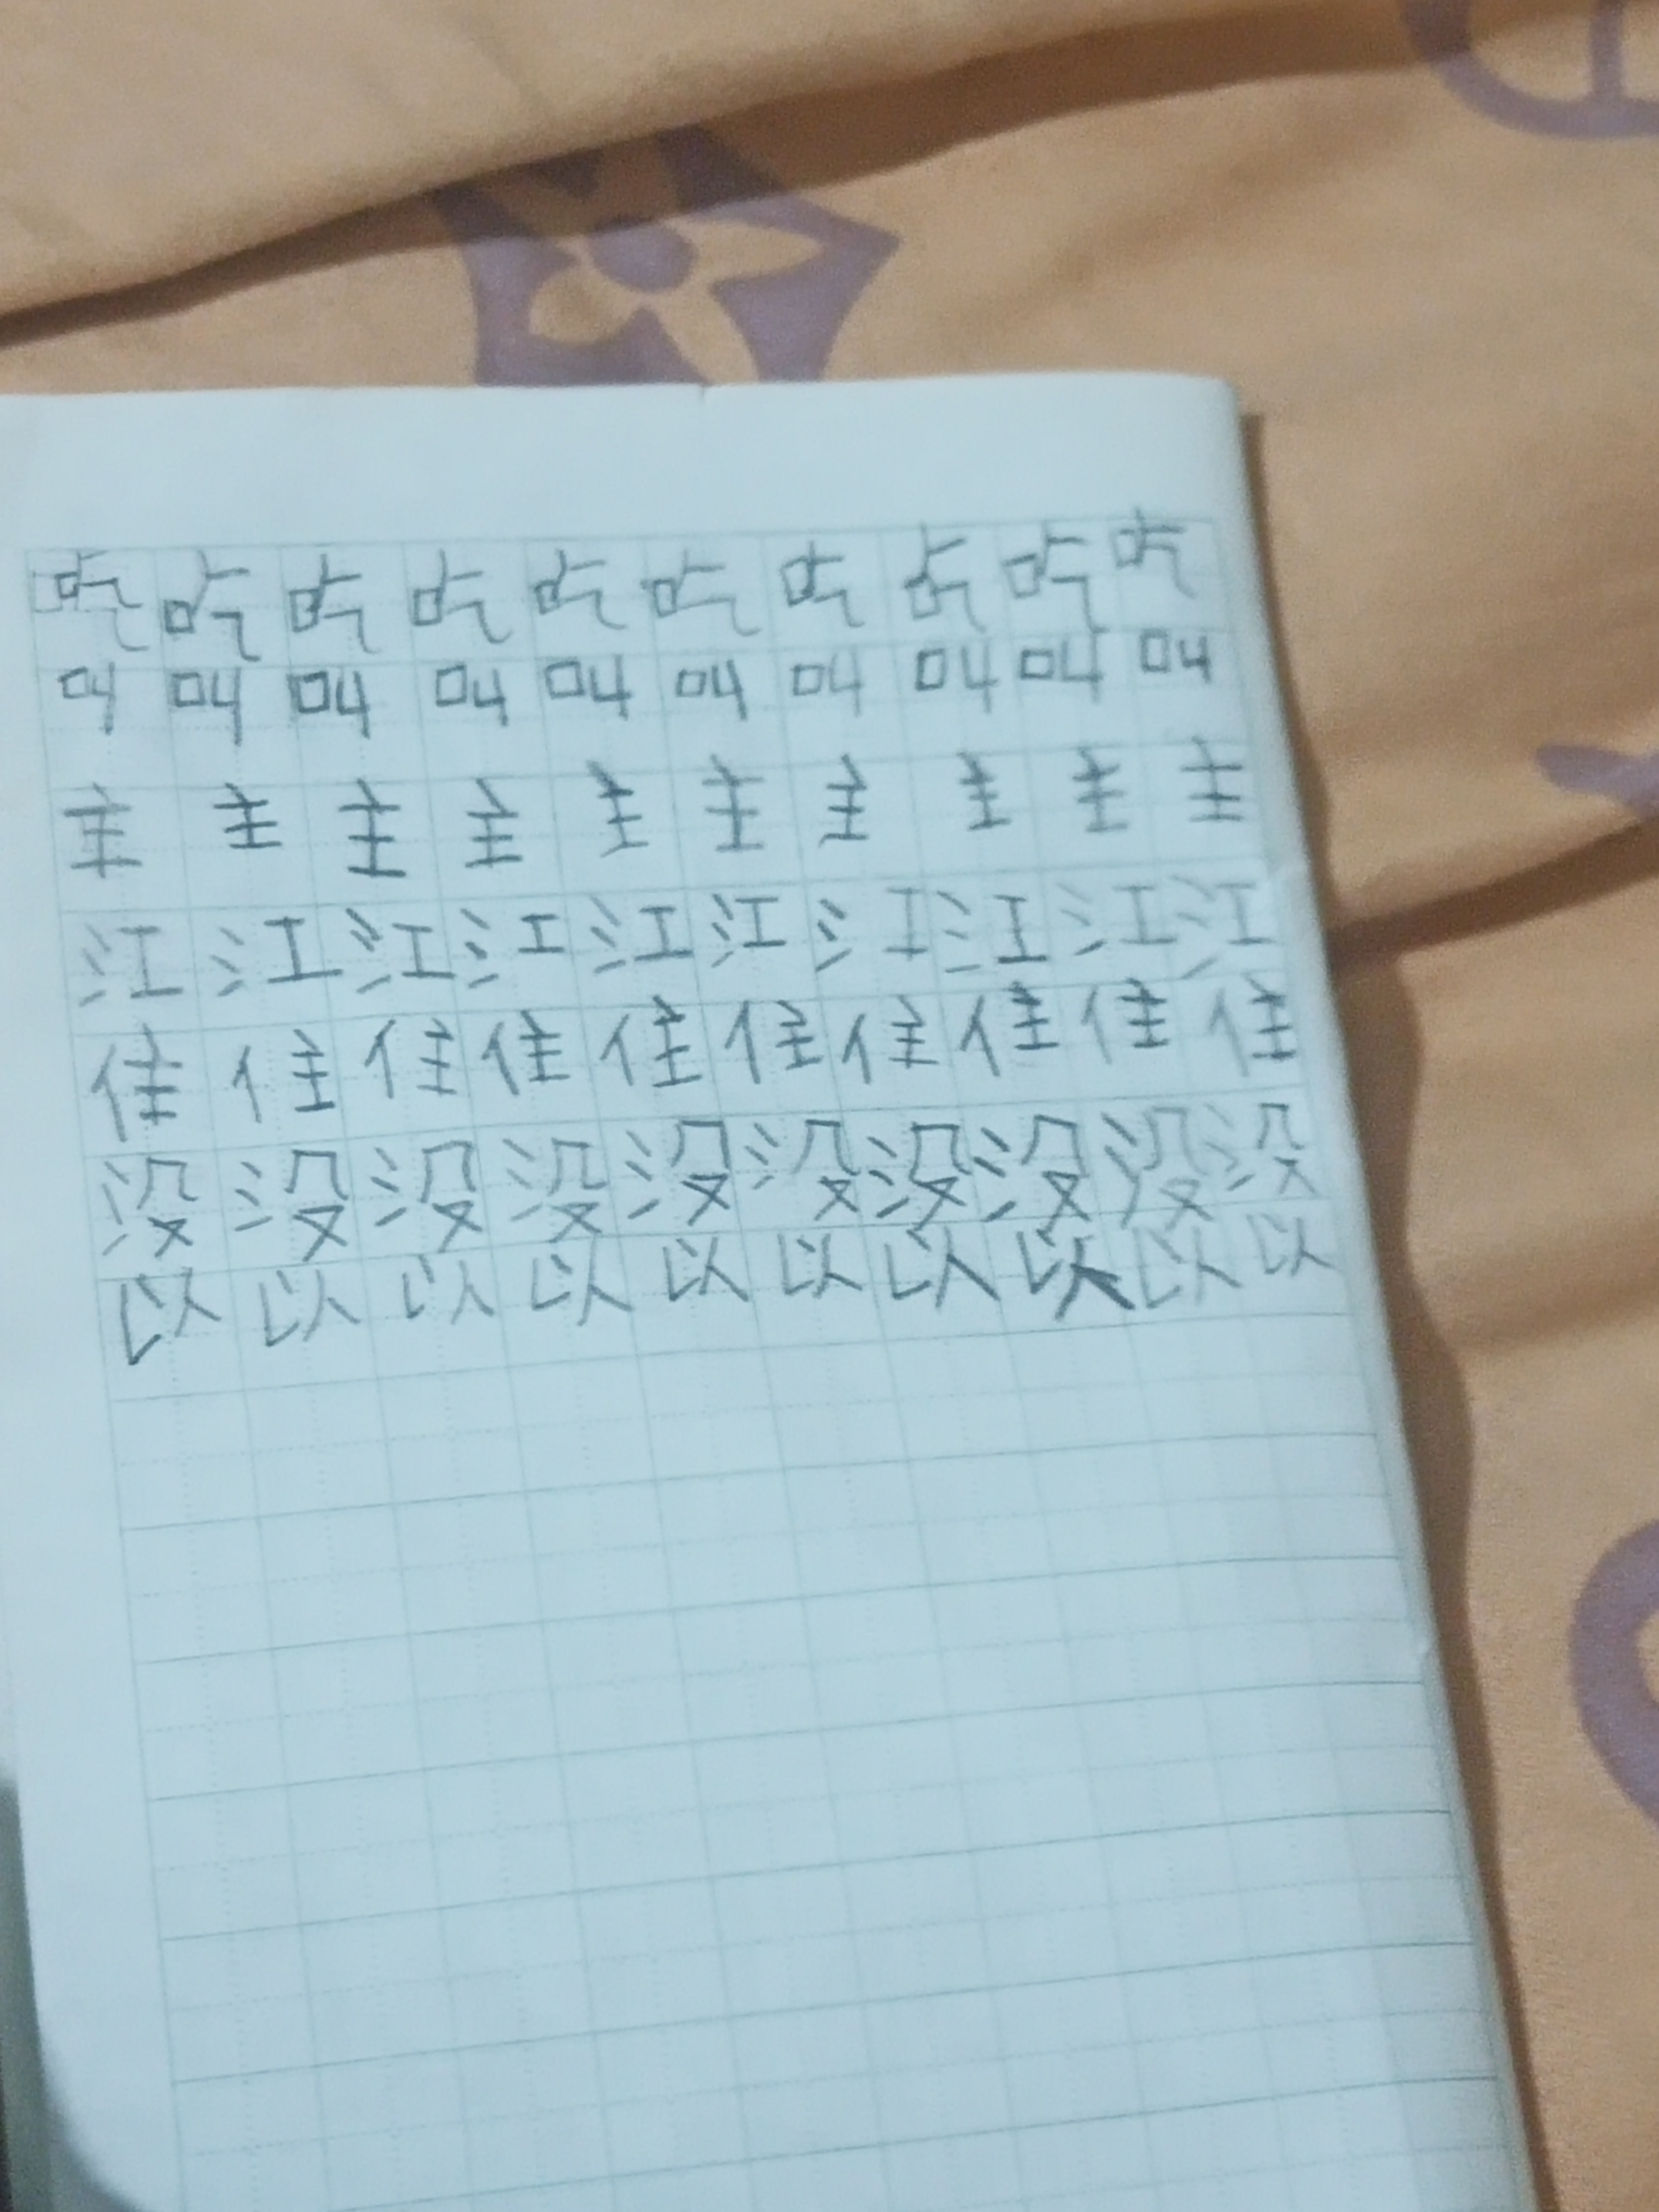 吃吃吃吃吃吃吃吃吃吃
叫叫叫叫叫叫叫叫叫叫
主主主主主主主主主主
江江江江江江江江江江
住住住住住住住住住住
没没没没没没没没没没
以以以以以以以以以以